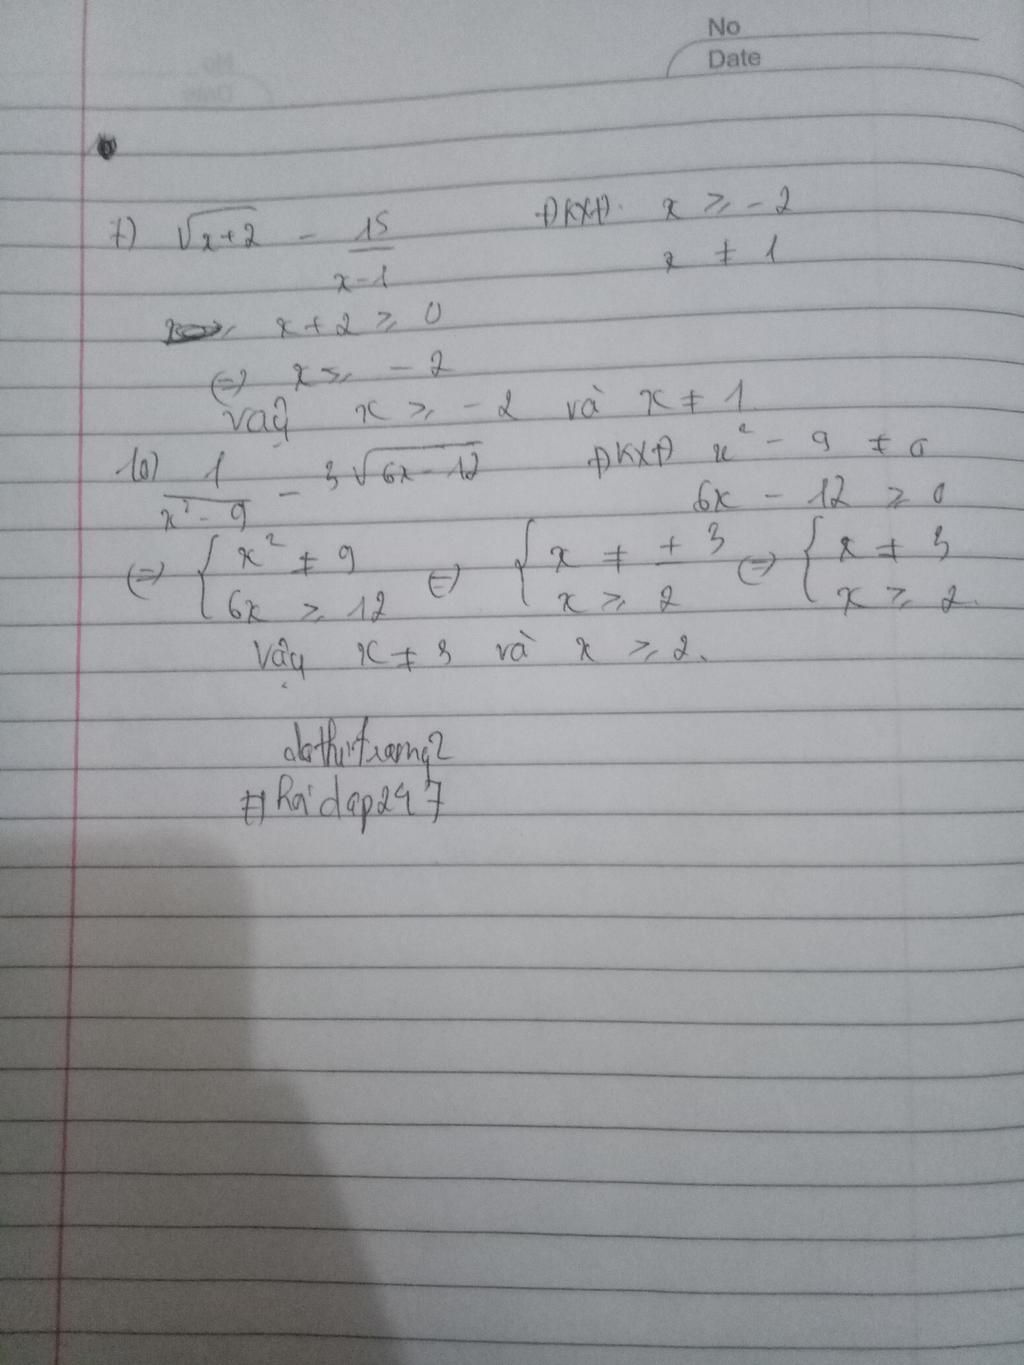 No
Date
7) √x+2 - 15/x-1 ĐKXĐ. x ≥ -2
x ≠ 1
x+2 ≥ 0
⇔ x ≥ -2
Vậy x ≥ -2 và x ≠ 1
10) 1/x²-9 - 3√6x-12 ĐKXĐ x² - 9 ≠ 0
6x - 12 ≥ 0
⇔ { x² ≠ 9 ⇔ { x ≠ ±3 ⇔ { x ≠ 3
6x ≥ 12 x ≥ 2 x ≥ 2.
Vậy x ≠ 3 và x ≥ 2.
dothutrang2
#hoidap247